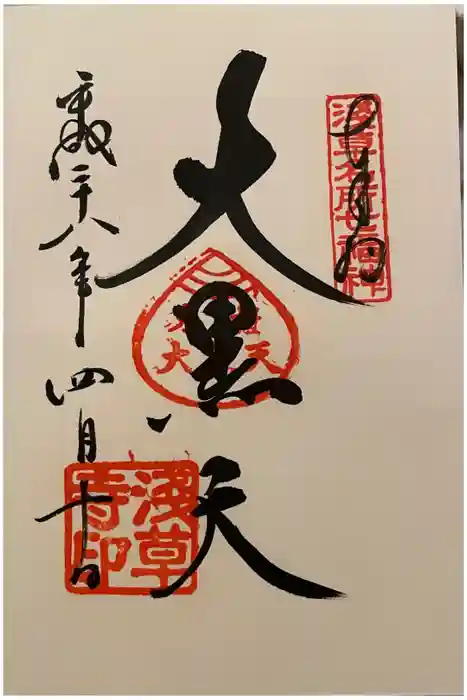 奉拝
浅草名所七福神
大黒天
浅草
寺印
平成二十八年四月十日